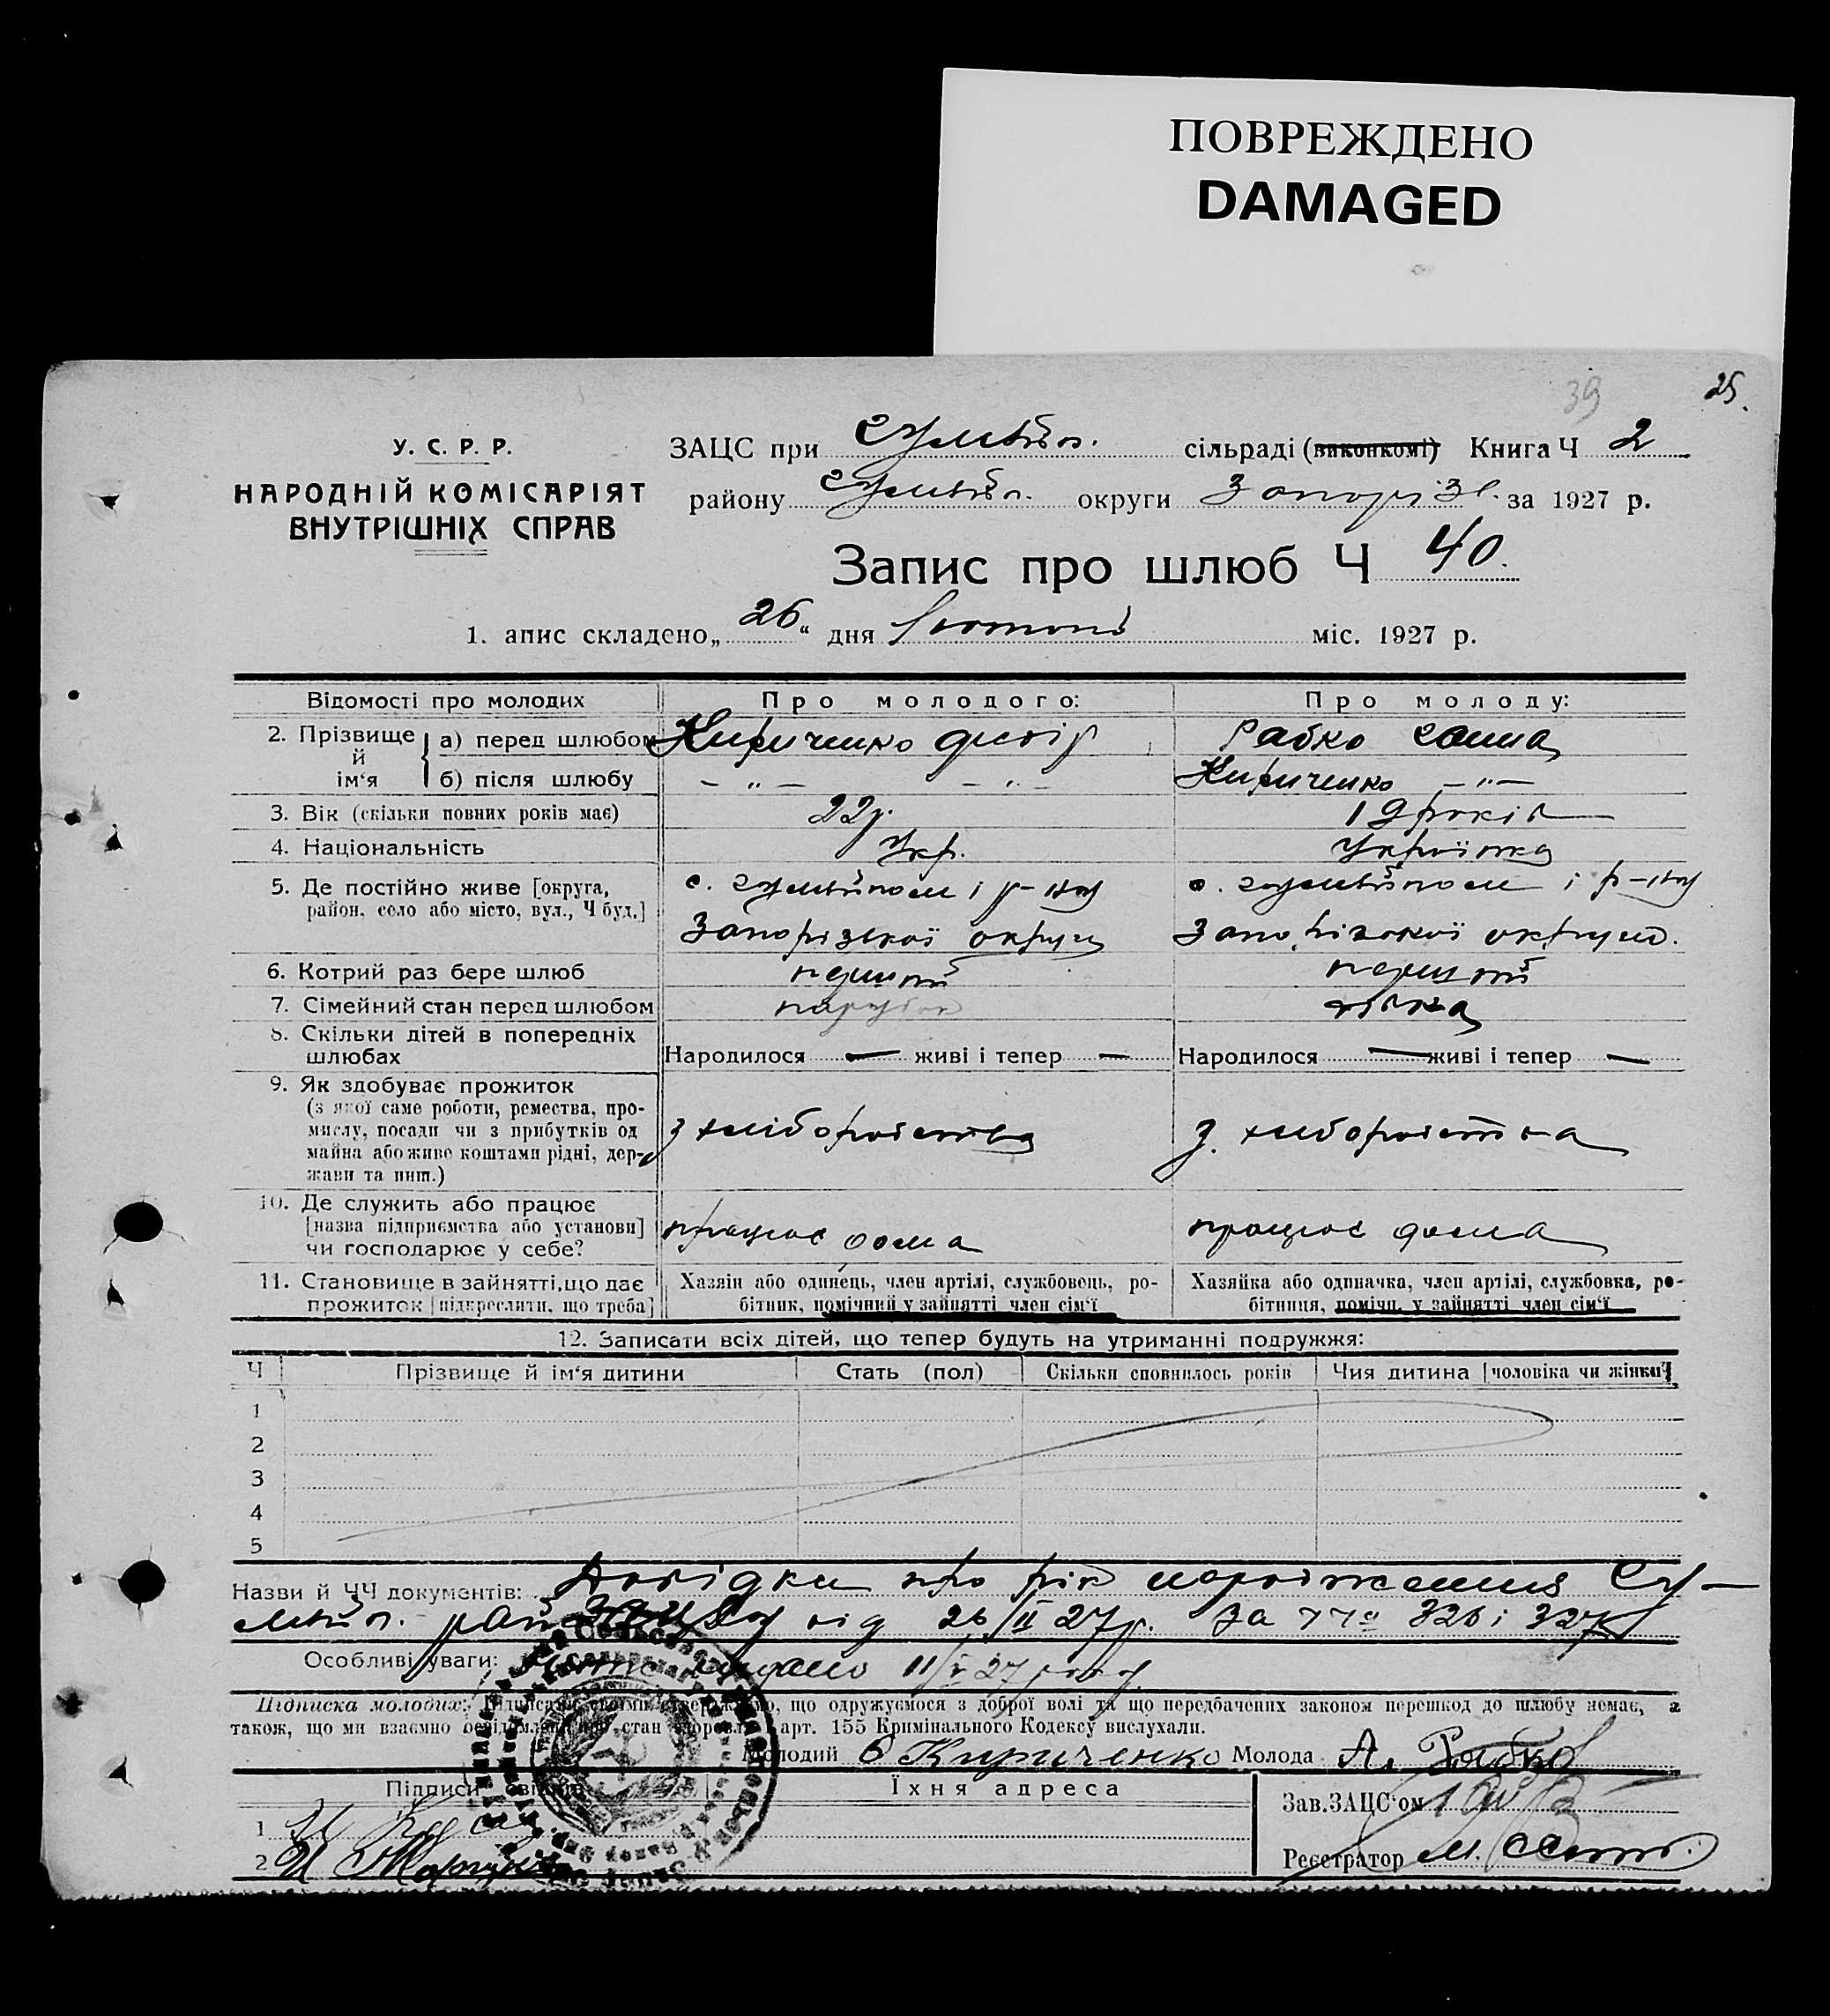 ПОВРЕЖДЕНО
DAMAGED
39
25.
У. С. Р. Р.
НАРОДНІЙ КОМІСАРІЯТ
ВНУТРІШНІХ СПРАВ
ЗАЦС при сільраді (виконкомі) Книга Ч 2
району округи Запорізь. за 1927 р.
Запис про шлюб Ч 40.
1. апис складено „ 26 “ дня Лютого міс. 1927 р.
Відомості про молодих
Про молодого:
Про молоду:
2. Прізвище й ім‘я
а) перед шлюбом
Кириченко Федір
Рабко Ганна
б) після шлюбу
– „ – – „ –
Кириченко – „ –
3. Вік (скільки повних років має)
22 р.
19 років
4. Національність
Укр.
Українка
5. Де постійно живе [округа,
район, село або місто, вул., Ч буд.]
с. і р-ну
Запорізької округи
с. і р-ну
Запорізької округи.
6. Котрий раз бере шлюб
перший
перший
7. Сімейний стан перед шлюбом
парубок
дівка
8. Скільки дітей в попередніх
шлюбах
Народилося — живі і тепер —
Народилося — живі і тепер —
9. Як здобуває прожиток
(з якої саме роботи, ремества, про-
мислу, посади чи з прибутків од
майна або живе коштами рідні, дер-
жави та инш.)
з хліборобства
з хліборобства
10. Де служить або працює
[назва підприємства або установи]
чи господарює у себе?
працює дома
працює дома
11. Становище в зайнятті, що дає
прожиток [підкреслити, що треба]
Хазяїн або одинець, член артілі, службовець, ро-
бітник, помічний у зайнятті член сім‘ї
Хазяйка або одиначка, член артілі, службовка, ро-
бітниця, помічн. у зайнятті член сім‘ї
12. Записати всіх дітей, що тепер будуть на утриманні подружжя:
Ч
Прізвище й ім‘я дитини
Стать (пол)
Скільки сповнилось років
Чия дитина [чоловіка чи жінки]
1
2
3
4
5
Назви й ЧЧ документів: Довідки про рік народження
від 26/II 27 р. за 326 і 327
Особливі уваги: видано 11/V 27 року
Підписка молодих: що одружуємося з доброї волі та що передбачених законом перешкод до шлюбу немає, а
також, що ми взаємно стан арт. 155 Кримінального Кодексу вислухали.
Молодий Ф Кириченко Молода А. Рабко
Підписи
Їхня адреса
Зав. ЗАЦС‘ом
1
2
Реєстратор